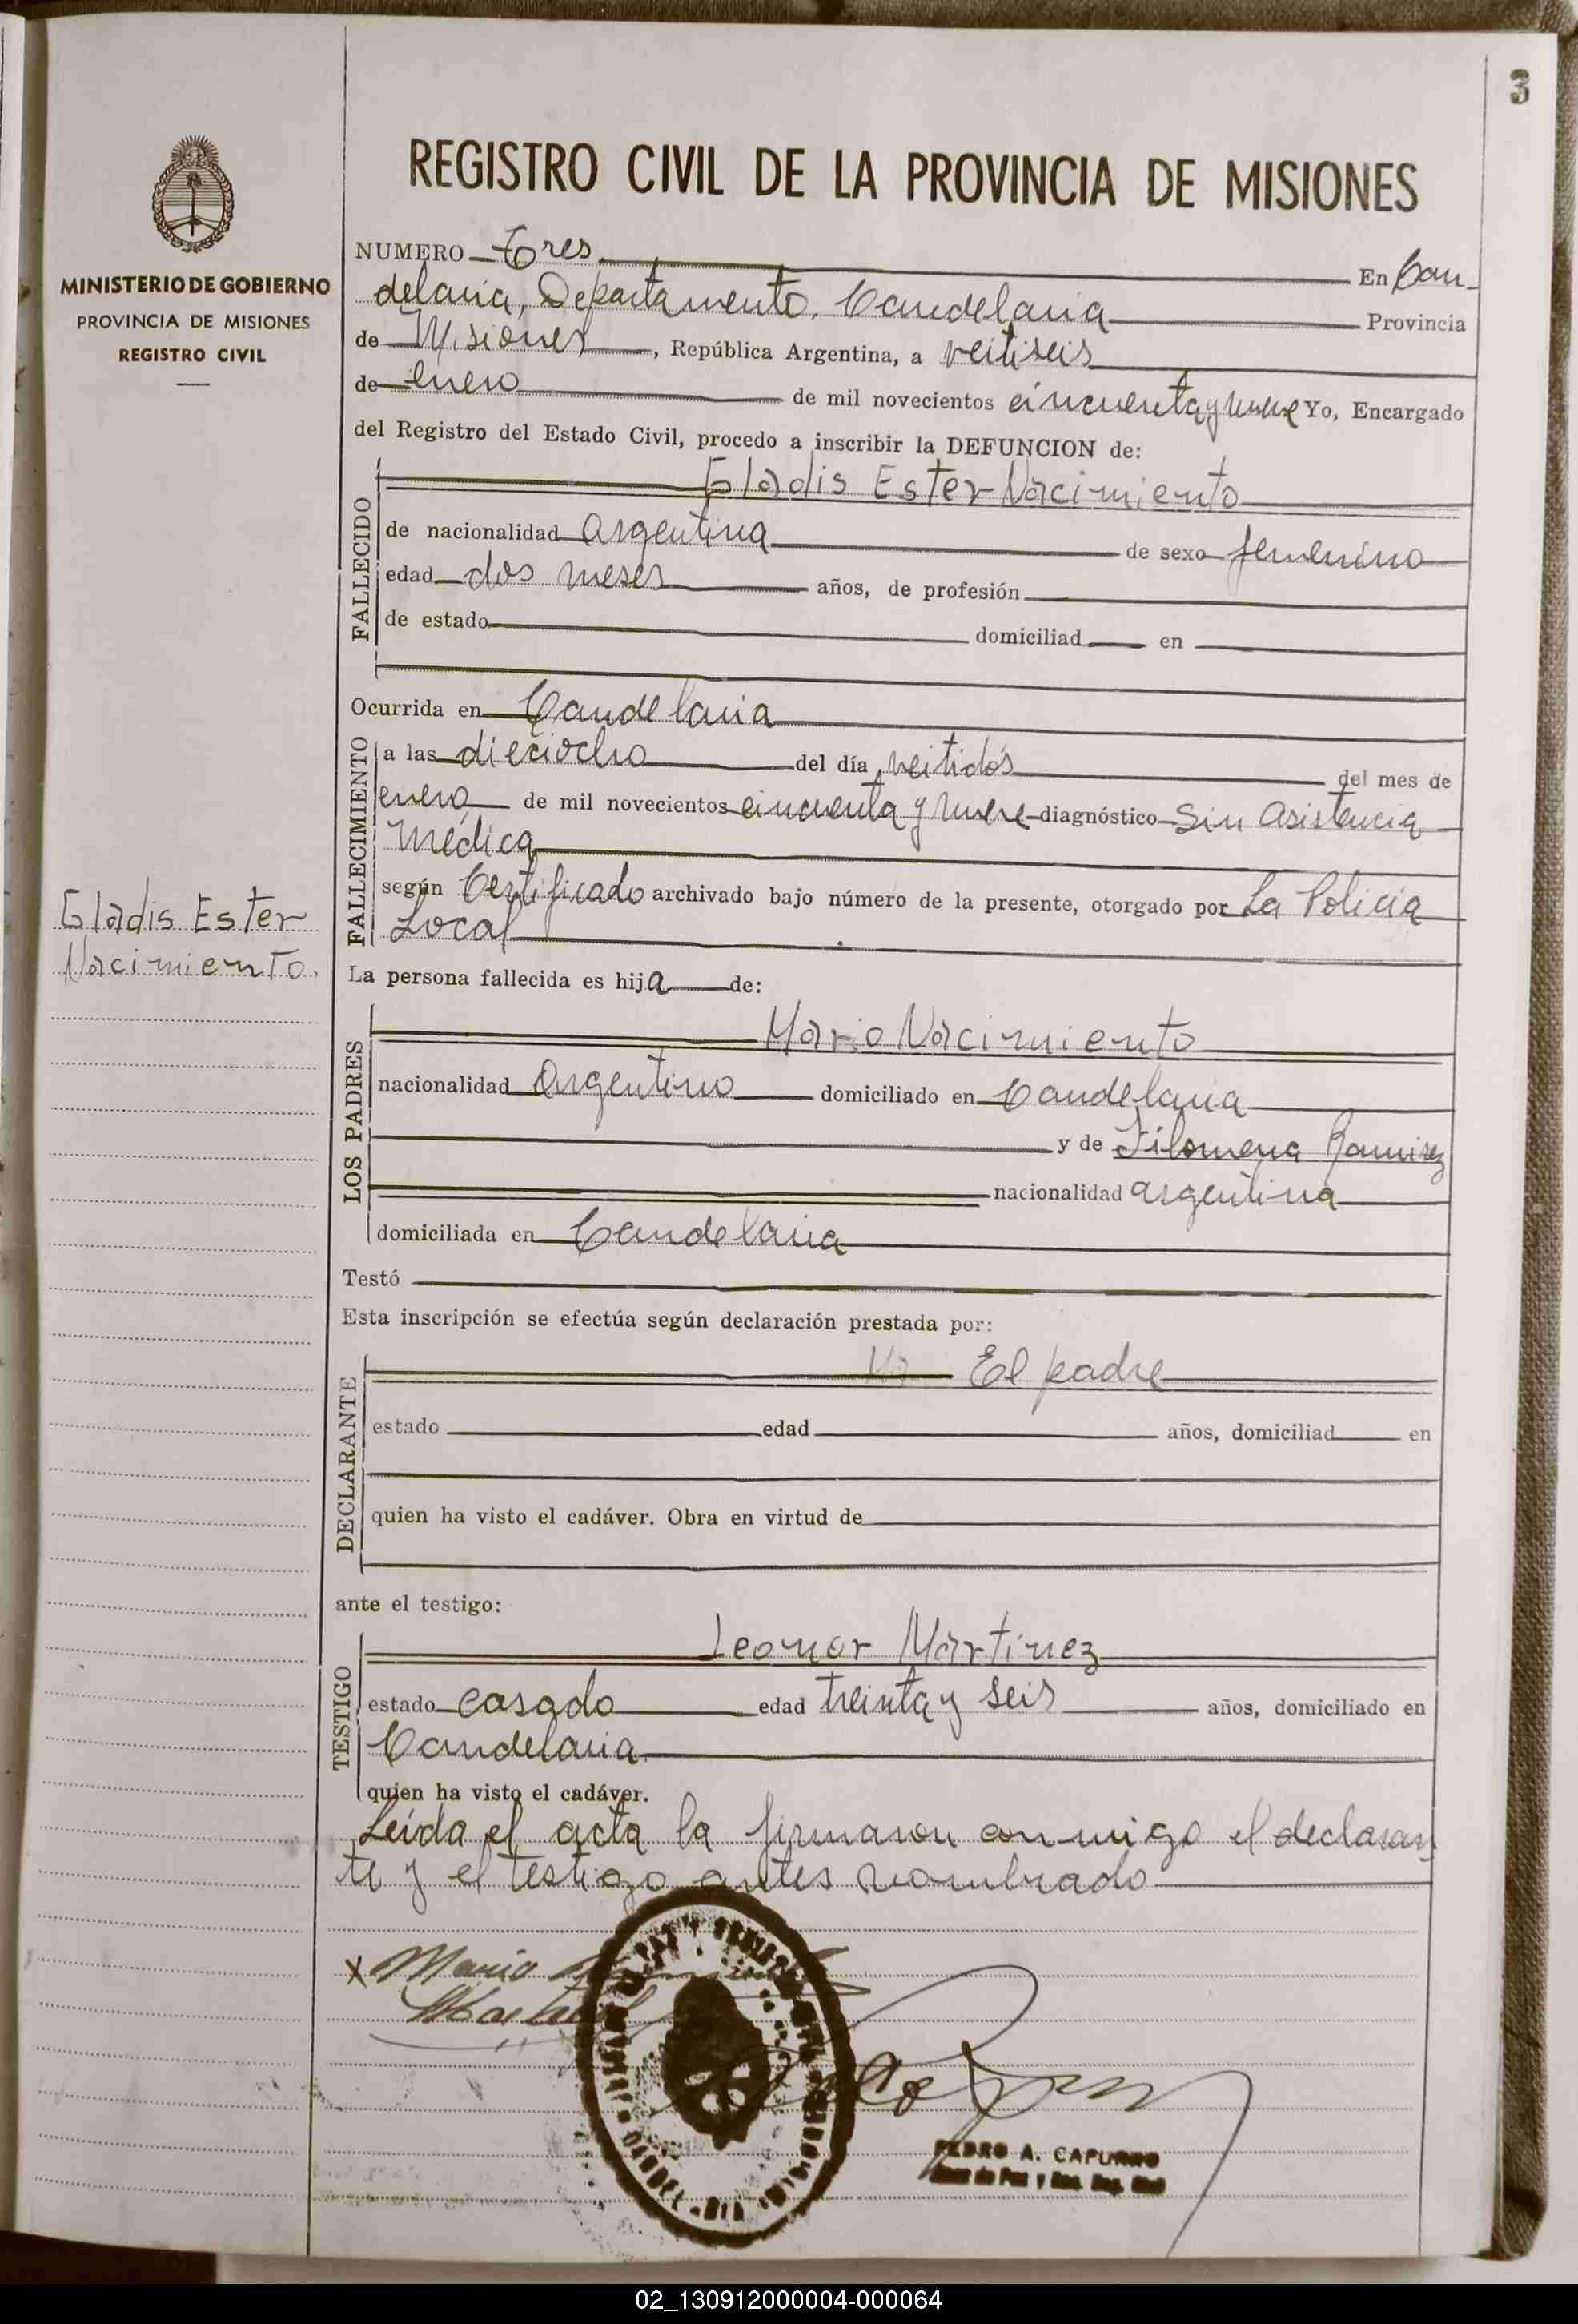 3
MINISTERIO DE GOBIERNO
PROVINCIA DE MISIONES
REGISTRO CIVIL
Gladis Ester
Nacimiento.
REGISTRO CIVIL DE LA PROVINCIA DE MISIONES
NUMERO Tres En Can-
delaria, Departamento, Candelaria Provincia
de Misiones, República Argentina, a veitiseis
de enero de mil novecientos cincuenta y nueve Yo, Encargado
del Registro del Estado Civil, procedo a inscribir la DEFUNCION de:
Gladis Ester Nacimiento
FALLECIDO
de nacionalidad Argentina de sexo femenino
edad dos meses años, de profesión
de estado domiciliad en
Ocurrida en Candelaria
FALLECIMIENTO
a las dieciocho del día veitidós del mes de
enero de mil novecientos cincuenta y nueve diagnóstico Sin Asistencia
Médica
según Certificado archivado bajo número de la presente, otorgado por La Policia
Local
La persona fallecida es hija de:
LOS PADRES
Mario Nacimiento
nacionalidad Argentino domiciliado en Candelaria
y de Filomena Ramirez
nacionalidad argentina
domiciliada en Candelaria
Testó
Esta inscripción se efectúa según declaración prestada por:
DECLARANTE
El padre
estado edad años, domiciliad en
quien ha visto el cadáver. Obra en virtud de
ante el testigo:
TESTIGO
Leonor Martinez
estado casado edad treinta y seis años, domiciliado en
Candelaria
quien ha visto el cadáver.
Leída el acta la firmaron conmigo el declaran
te y el testigo antes nombrado
x Mario
PEDRO A. CAPURRO
Juez de Paz y Enc. Reg. Civil
02_130912000004-000064